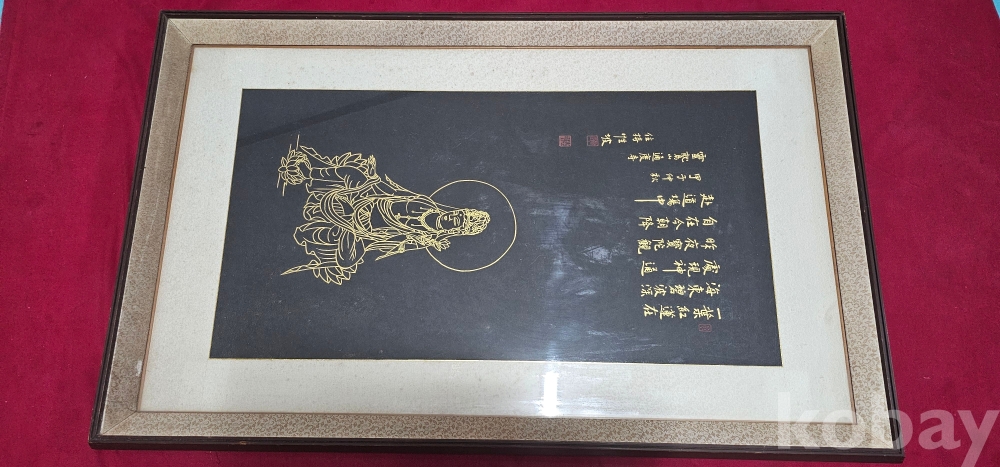 一葉紅蓮在
海東碧波深
處現神通
昨夜寶陀觀
自在今朝降
赴道場中
甲子仲秋
靈鷲山通度寺
住持性坡
kobay